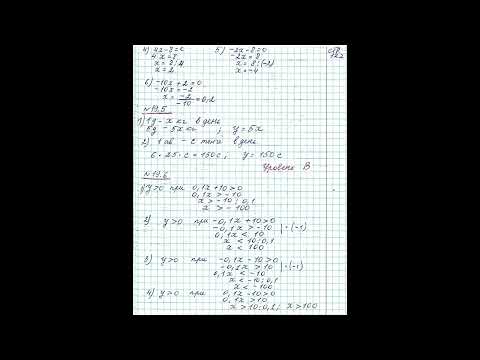 4) 4x-8=0    5) -2x-8=0
4x=8    -2x=8
x=8:4    x=8:(-2)
x=2    x=-4
6) -10x+2=0
-10x=-2
x= -2/-10 =0,2
№19.5
1) 1д - x кг в день
5д - 5x кг ; y=5x
2) 1 ав - c тонн в день
6·25·c=150c, y=150c
Уровень В
№19.6
1) y>0 при 0,1x+10>0
0,1x>-10
x>-10:0,1
x>-100
2) y>0 при -0,1x+10>0
-0,1x>-10 |·(-1)
0,1x<10
x<10:0,1
x<100
3) y>0 при -0,1x-10>0
-0,1x>10 |·(-1)
0,1x<-10
x<-10:0,1
x<-100
4) y>0 при 0,1x-10>0
0,1x>10
x>10:0,1; x>100